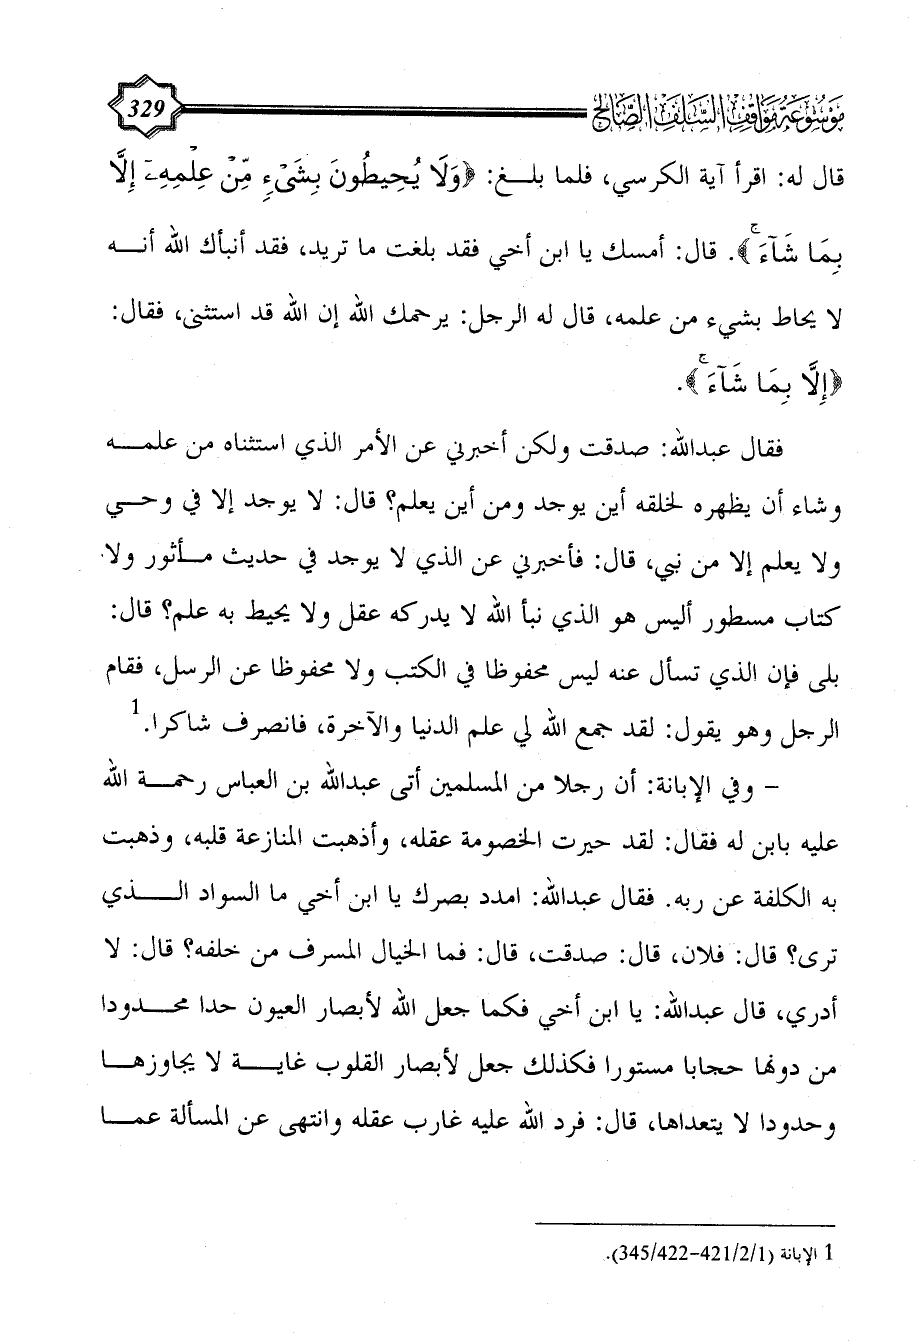 موسوعة مواقف السلف الصالح
329
قال له: اقرأ آية الكرسي، فلما بلـــغ: ﴿وَلَا يُحِيطُونَ بِشَيْءٍ مِّنْ عِلْمِهِۦٓ إِلَّا
بِمَا شَآءَ ۚ﴾. قال: أمسك يا ابن أخي فقد بلغت ما تريد، فقد أنبأك الله أنـــه
لا يحاط بشيء من علمه، قال له الرجل: يرحمك الله إن الله قد استثنى، فقال:
﴿إِلَّا بِمَا شَآءَ ۚ﴾.
فقال عبدالله: صدقت ولكن أخبرني عن الأمر الذي استثناه من علمـــه
وشاء أن يظهره لخلقه أين يوجد ومن أين يعلم؟ قال: لا يوجد إلا في وحـــي
ولا يعلم إلا من نبي، قال: فأخبرني عن الذي لا يوجد في حديث مـأثور ولا
كتاب مسطور أليس هو الذي نبأ الله لا يدركه عقل ولا يحيط به علم؟ قال:
بلى فإن الذي تسأل عنه ليس محفوظا في الكتب ولا محفوظا عن الرسل، فقام
الرجل وهو يقول: لقد جمع الله لي علم الدنيا والآخرة، فانصرف شاكرا.1
- وفي الإبانة: أن رجلا من المسلمين أتى عبدالله بن العباس رحمـــة الله
عليه بابن له فقال: لقد حيرت الخصومة عقله، وأذهبت المنازعة قلبه، وذهبت
به الكلفة عن ربه. فقال عبدالله: امدد بصرك يا ابن أخي ما السواد الـــذي
ترى؟ قال: فلان، قال: صدقت، قال: فما الخيال المسرف من خلفه؟ قال: لا
أدري، قال عبدالله: يا ابن أخي فكما جعل الله لأبصار العيون حدا محـــدودا
من دونها حجابا مستورا فكذلك جعل لأبصار القلوب غايـــة لا يجاوزهـــا
وحدودا لا يتعداها، قال: فرد الله عليه غارب عقله وانتهى عن المسألة عمـــا
1 الإبانة (1/2/421-345/422).